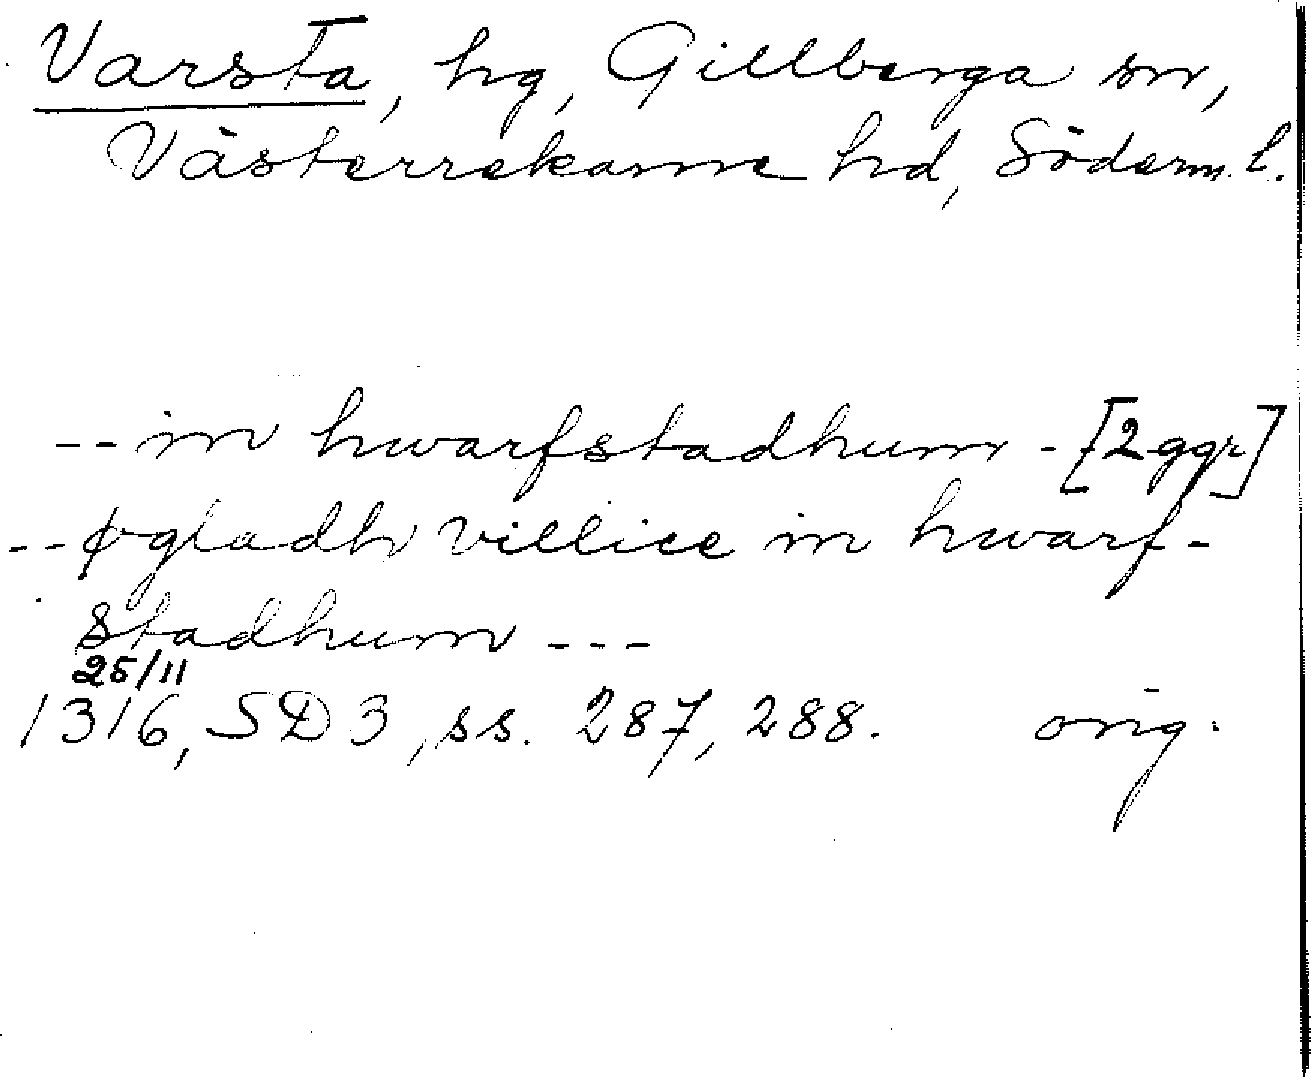 Varsta, hg, Gillberga sn,
Västerrekarne hd, Söderm. l.
-- in hwarfstadhum - [2 ggr]
-- øgladh villice in hwarf-
stadhum ---
25/11
1316, SD 3, ss. 287, 288. orig.